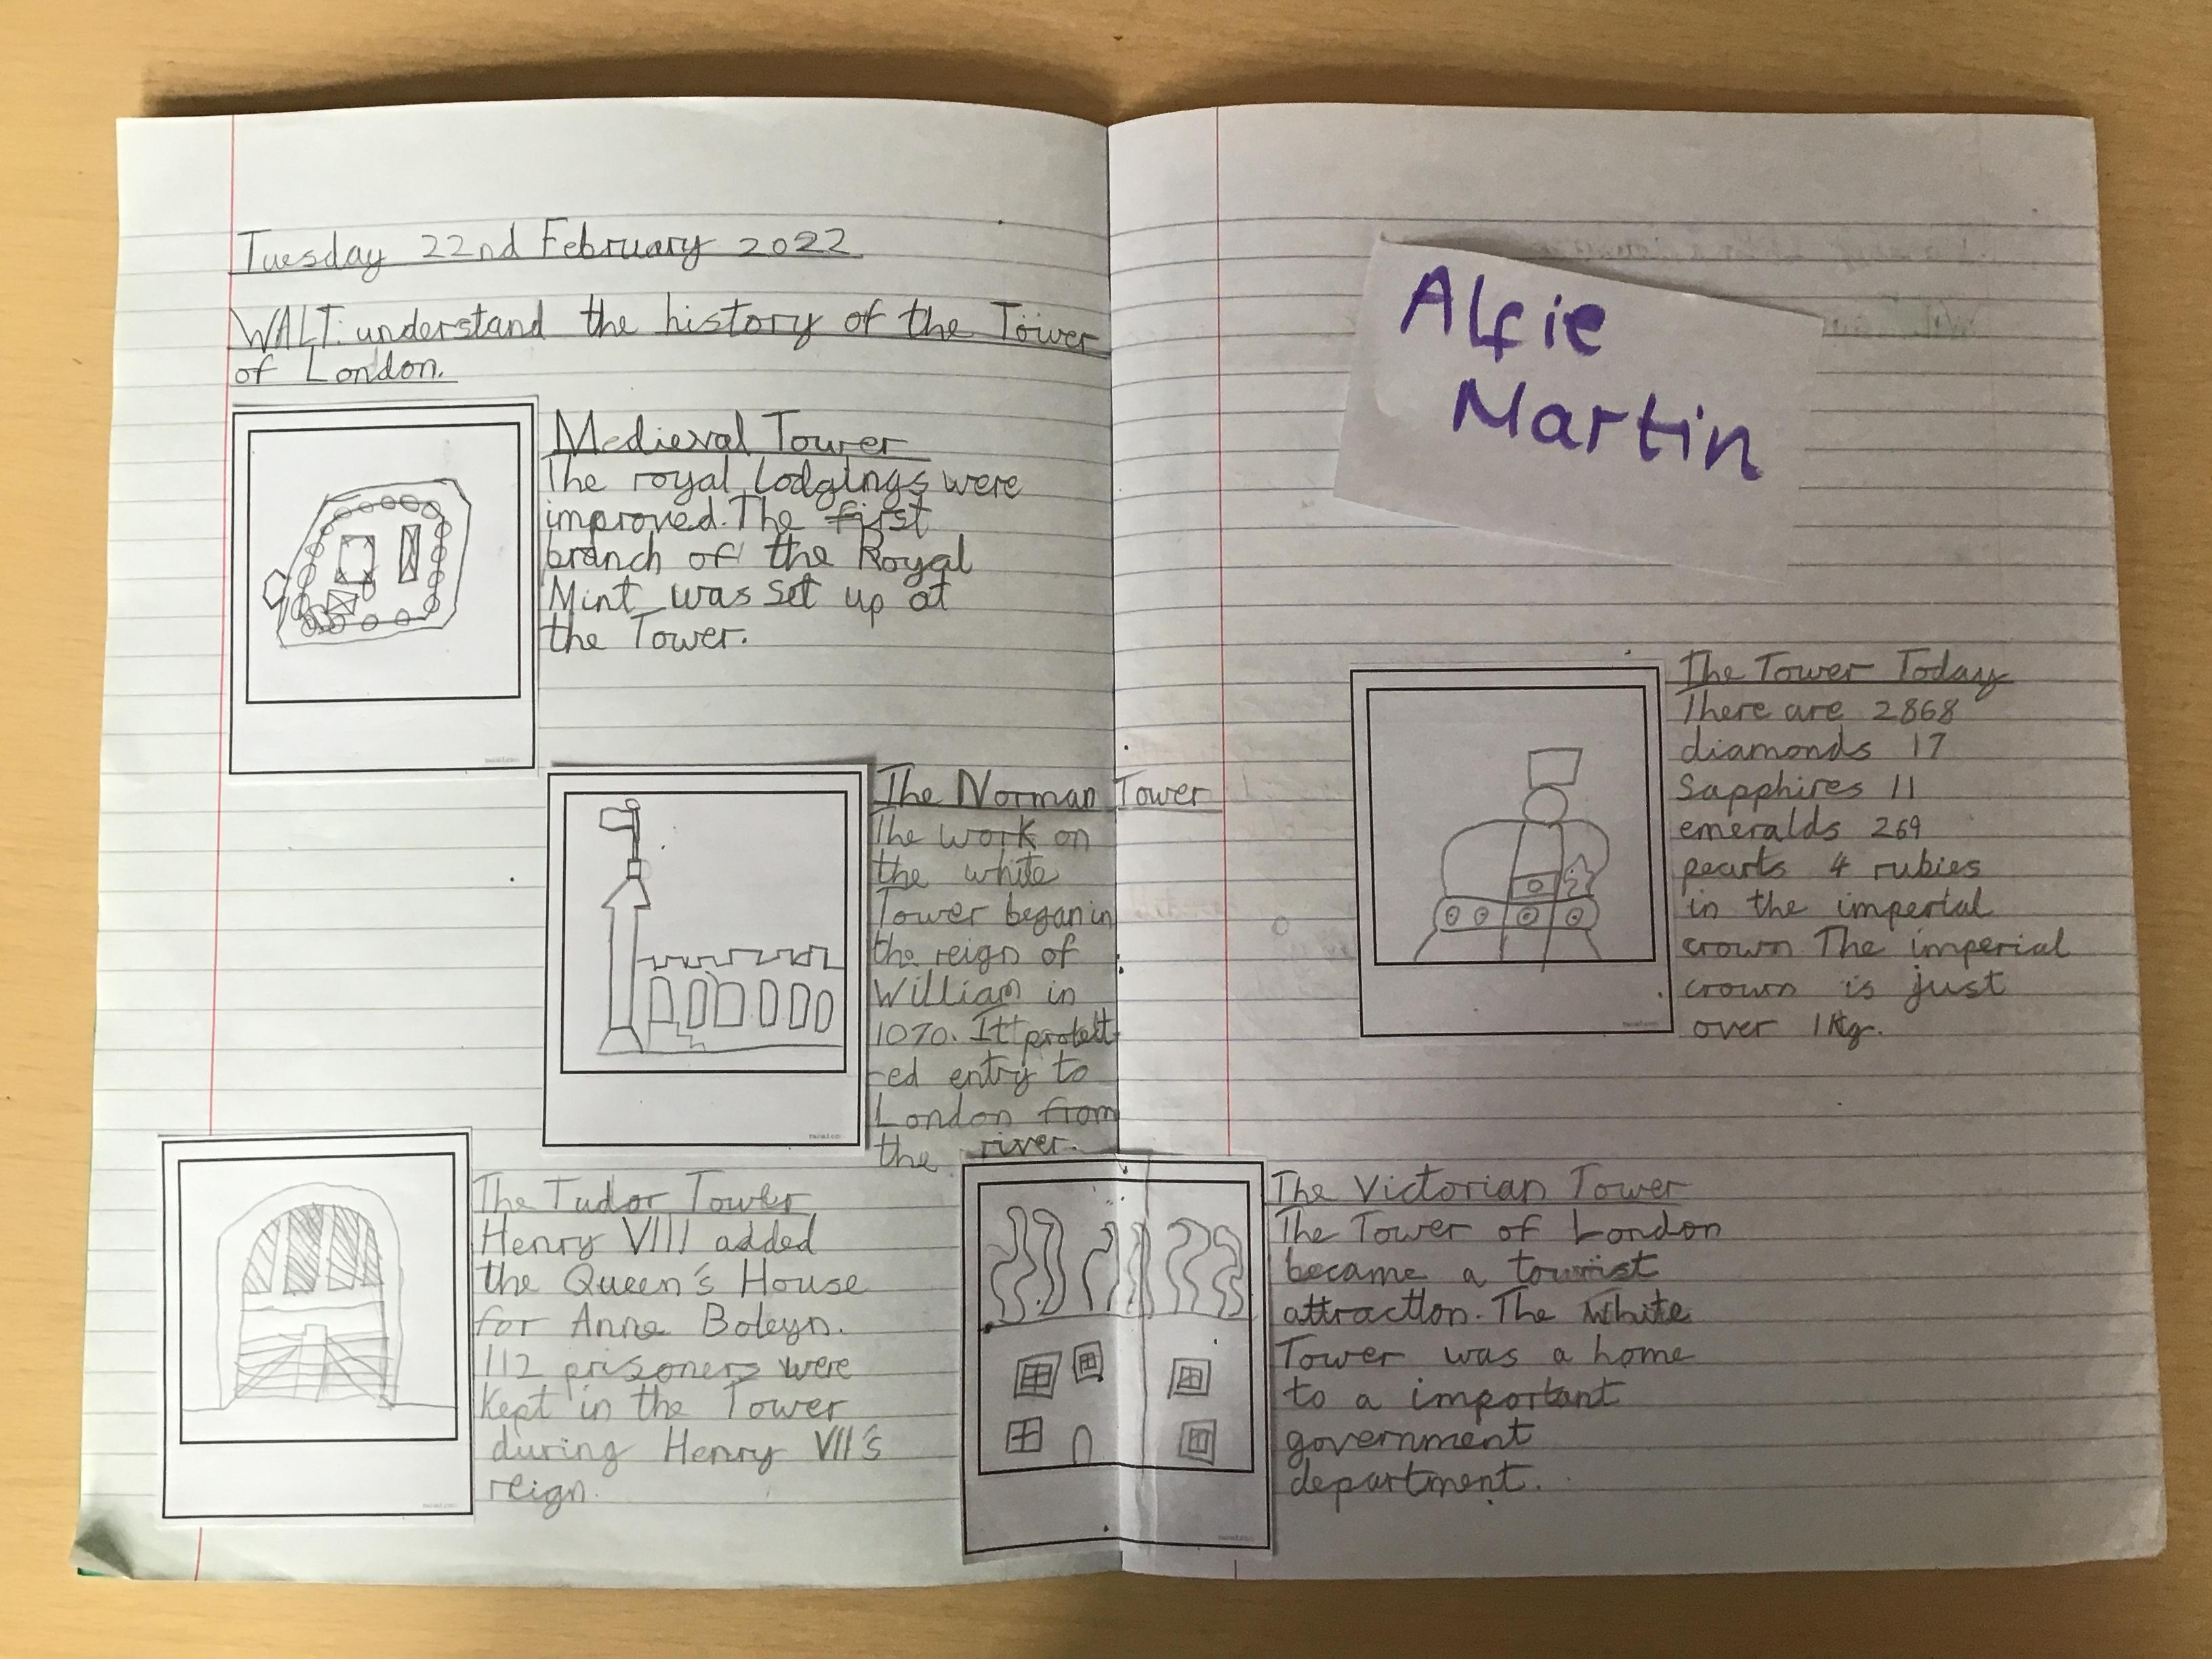 Tuesday 22nd February 2022
WALT: understand the history of the Tower
of London.
Medieval Tower
The royal lodgings were
improved. The first
branch of the Royal
Mint was set up at
the Tower.
The Norman Tower
The work on
the white
Tower began in
the reign of
William in
1070. It protect
-ed entry to
London from
the river.
The Tudor Tower
Henry VIII added
the Queen's House
for Anne Boleyn.
112 prisoners were
kept in the Tower
during Henry VII's
reign.
Alfie
Martin
The Tower Today
There are 2868
diamonds 17
Sapphires 11
emeralds 269
pearls 4 rubies
in the imperial
crown The imperial
crown is just
over 1Kg.
The Victorian Tower
The Tower of London
became a tourist
attraction. The White
Tower was a home
to a important
government
department.